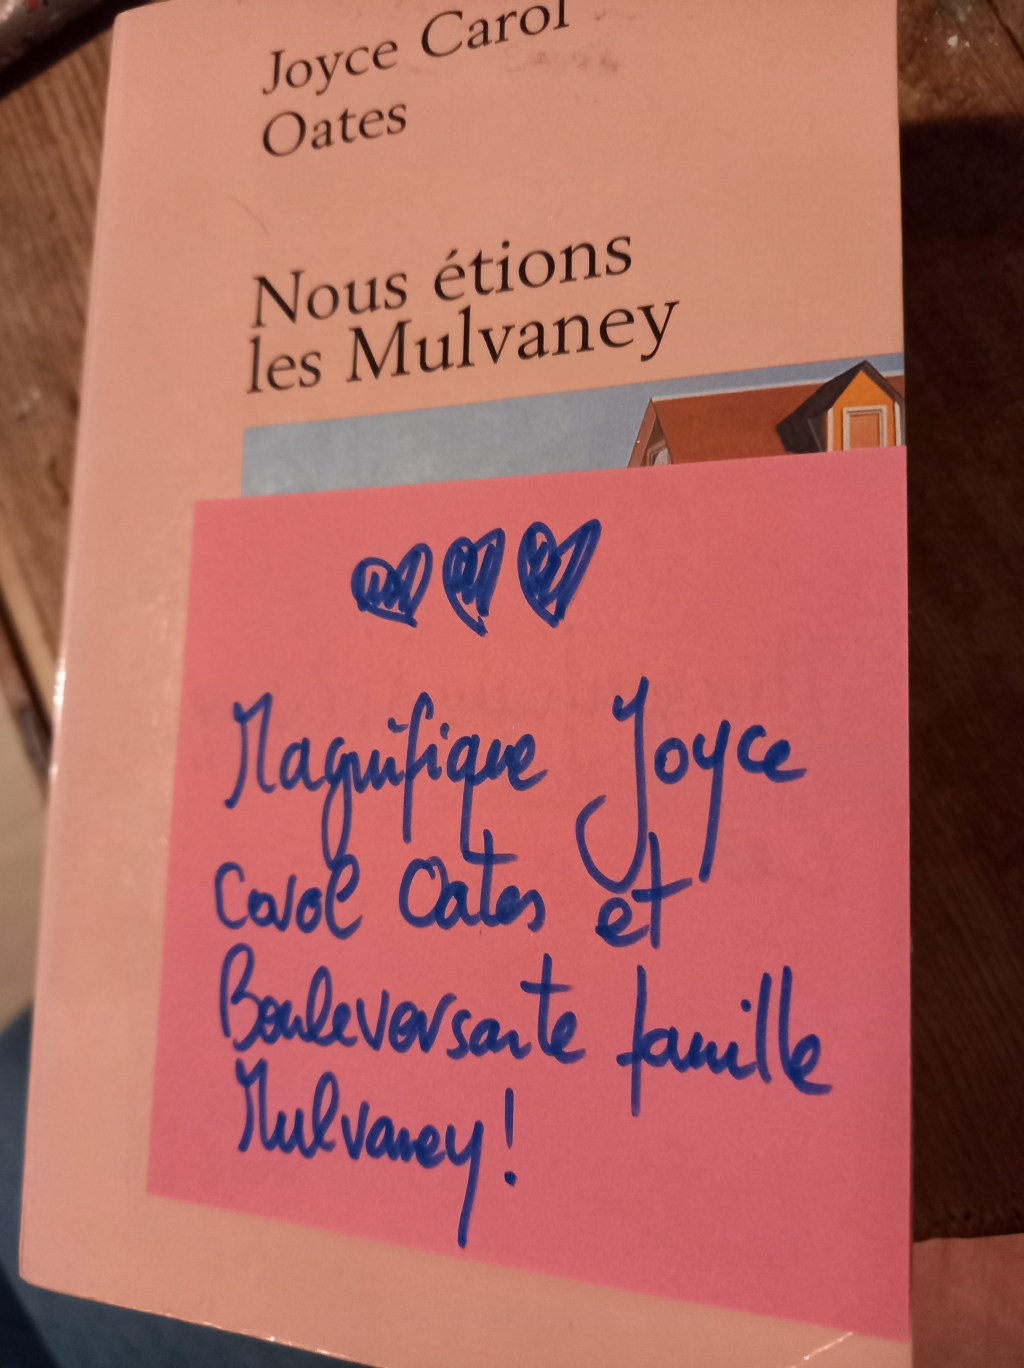 Joyce Carol
Oates
Nous étions
les Mulvaney
Magnifique Joyce
Carol Oates et
Bouleversante famille
Mulvaney!